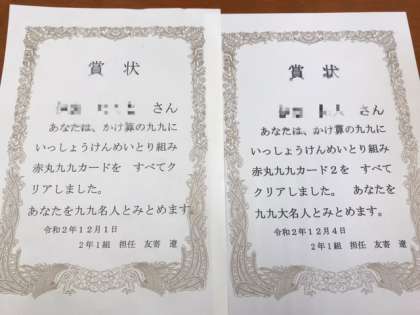 賞状
さん
あなたは、かけ算の九九に
いっしょうけんめいとり組み
赤丸九九カードを すべてク
リアしました。
あなたを九九名人とみとめます。
令和2年12月1日
2年1組 担任 友寄 遼
賞状
さん
あなたは、かけ算の九九に
いっしょうけんめいとり組み
赤丸九九カード2を すべて
クリアしました。 あなたを
九九大名人とみとめます。
令和2年12月4日
2年1組 担任 友寄 遼